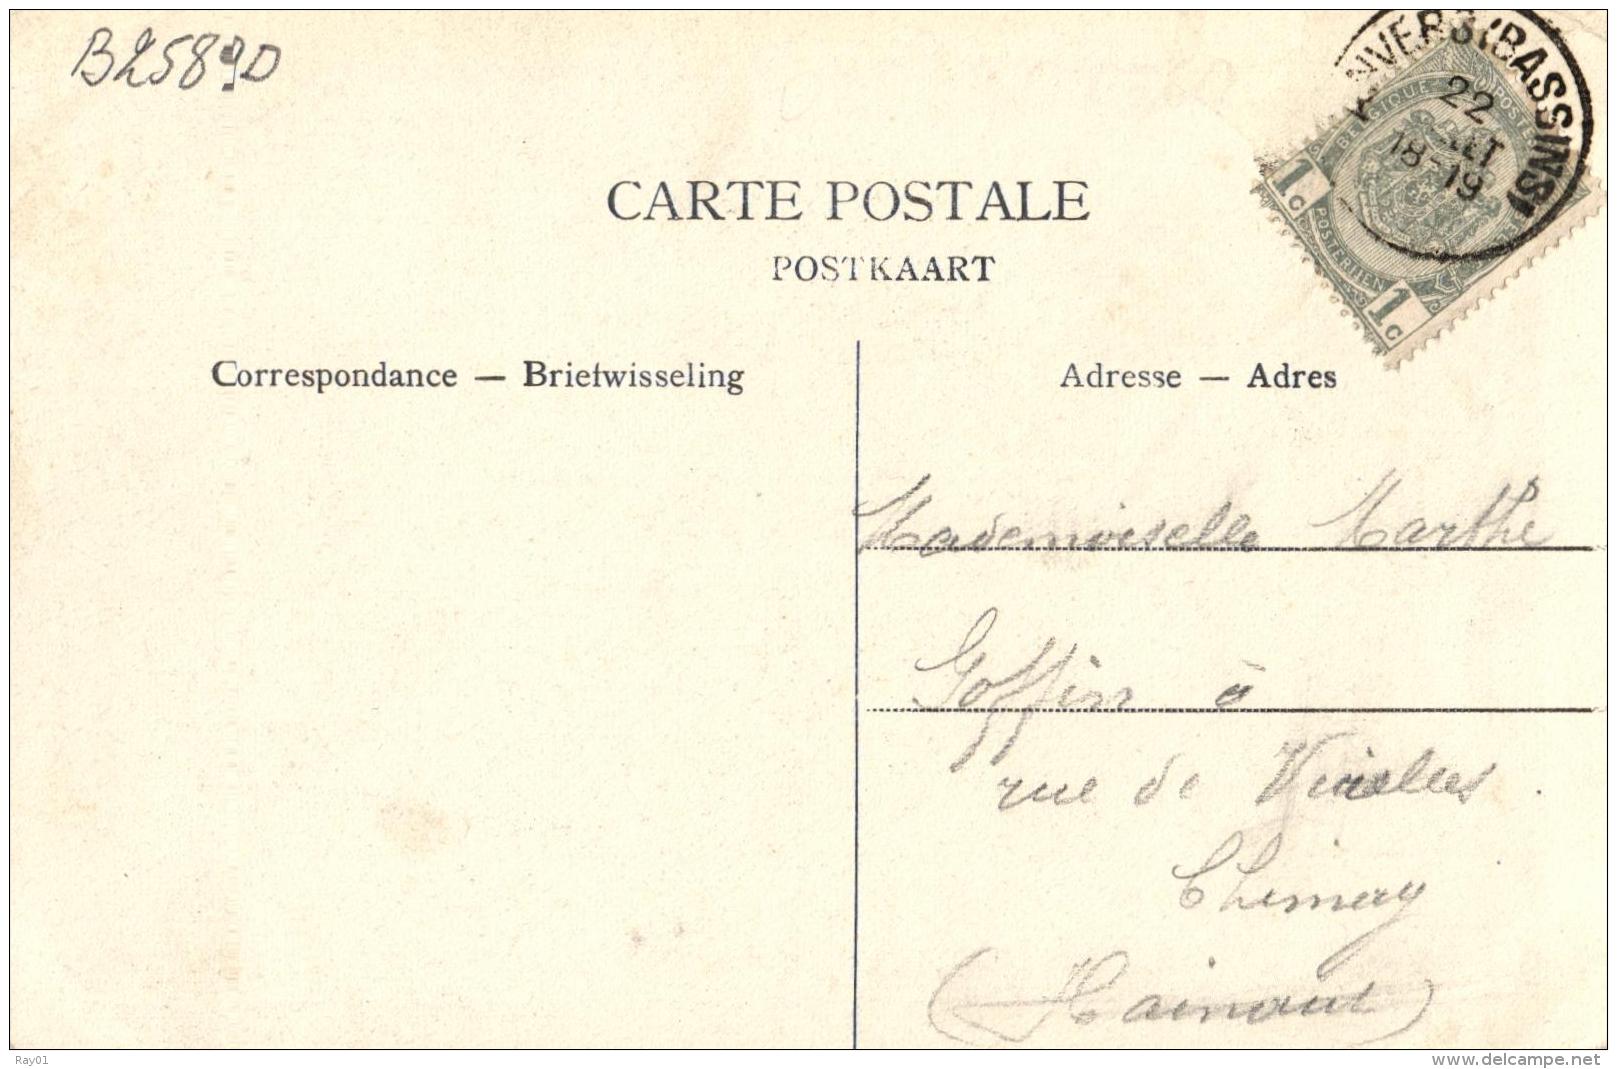 B2589D
CARTE POSTALE
POSTKAART
ANVERS (BASSINS)
22
18-19
BELGIQUE POSTES
POSTERIJEN
1 c
1 c
Correspondance — Briefwisseling
Adresse — Adres
Mademoiselle Marthe
Goffin à
rue de Virelles
Chimay
(Hainaut)
Ray01
www.delcampe.net